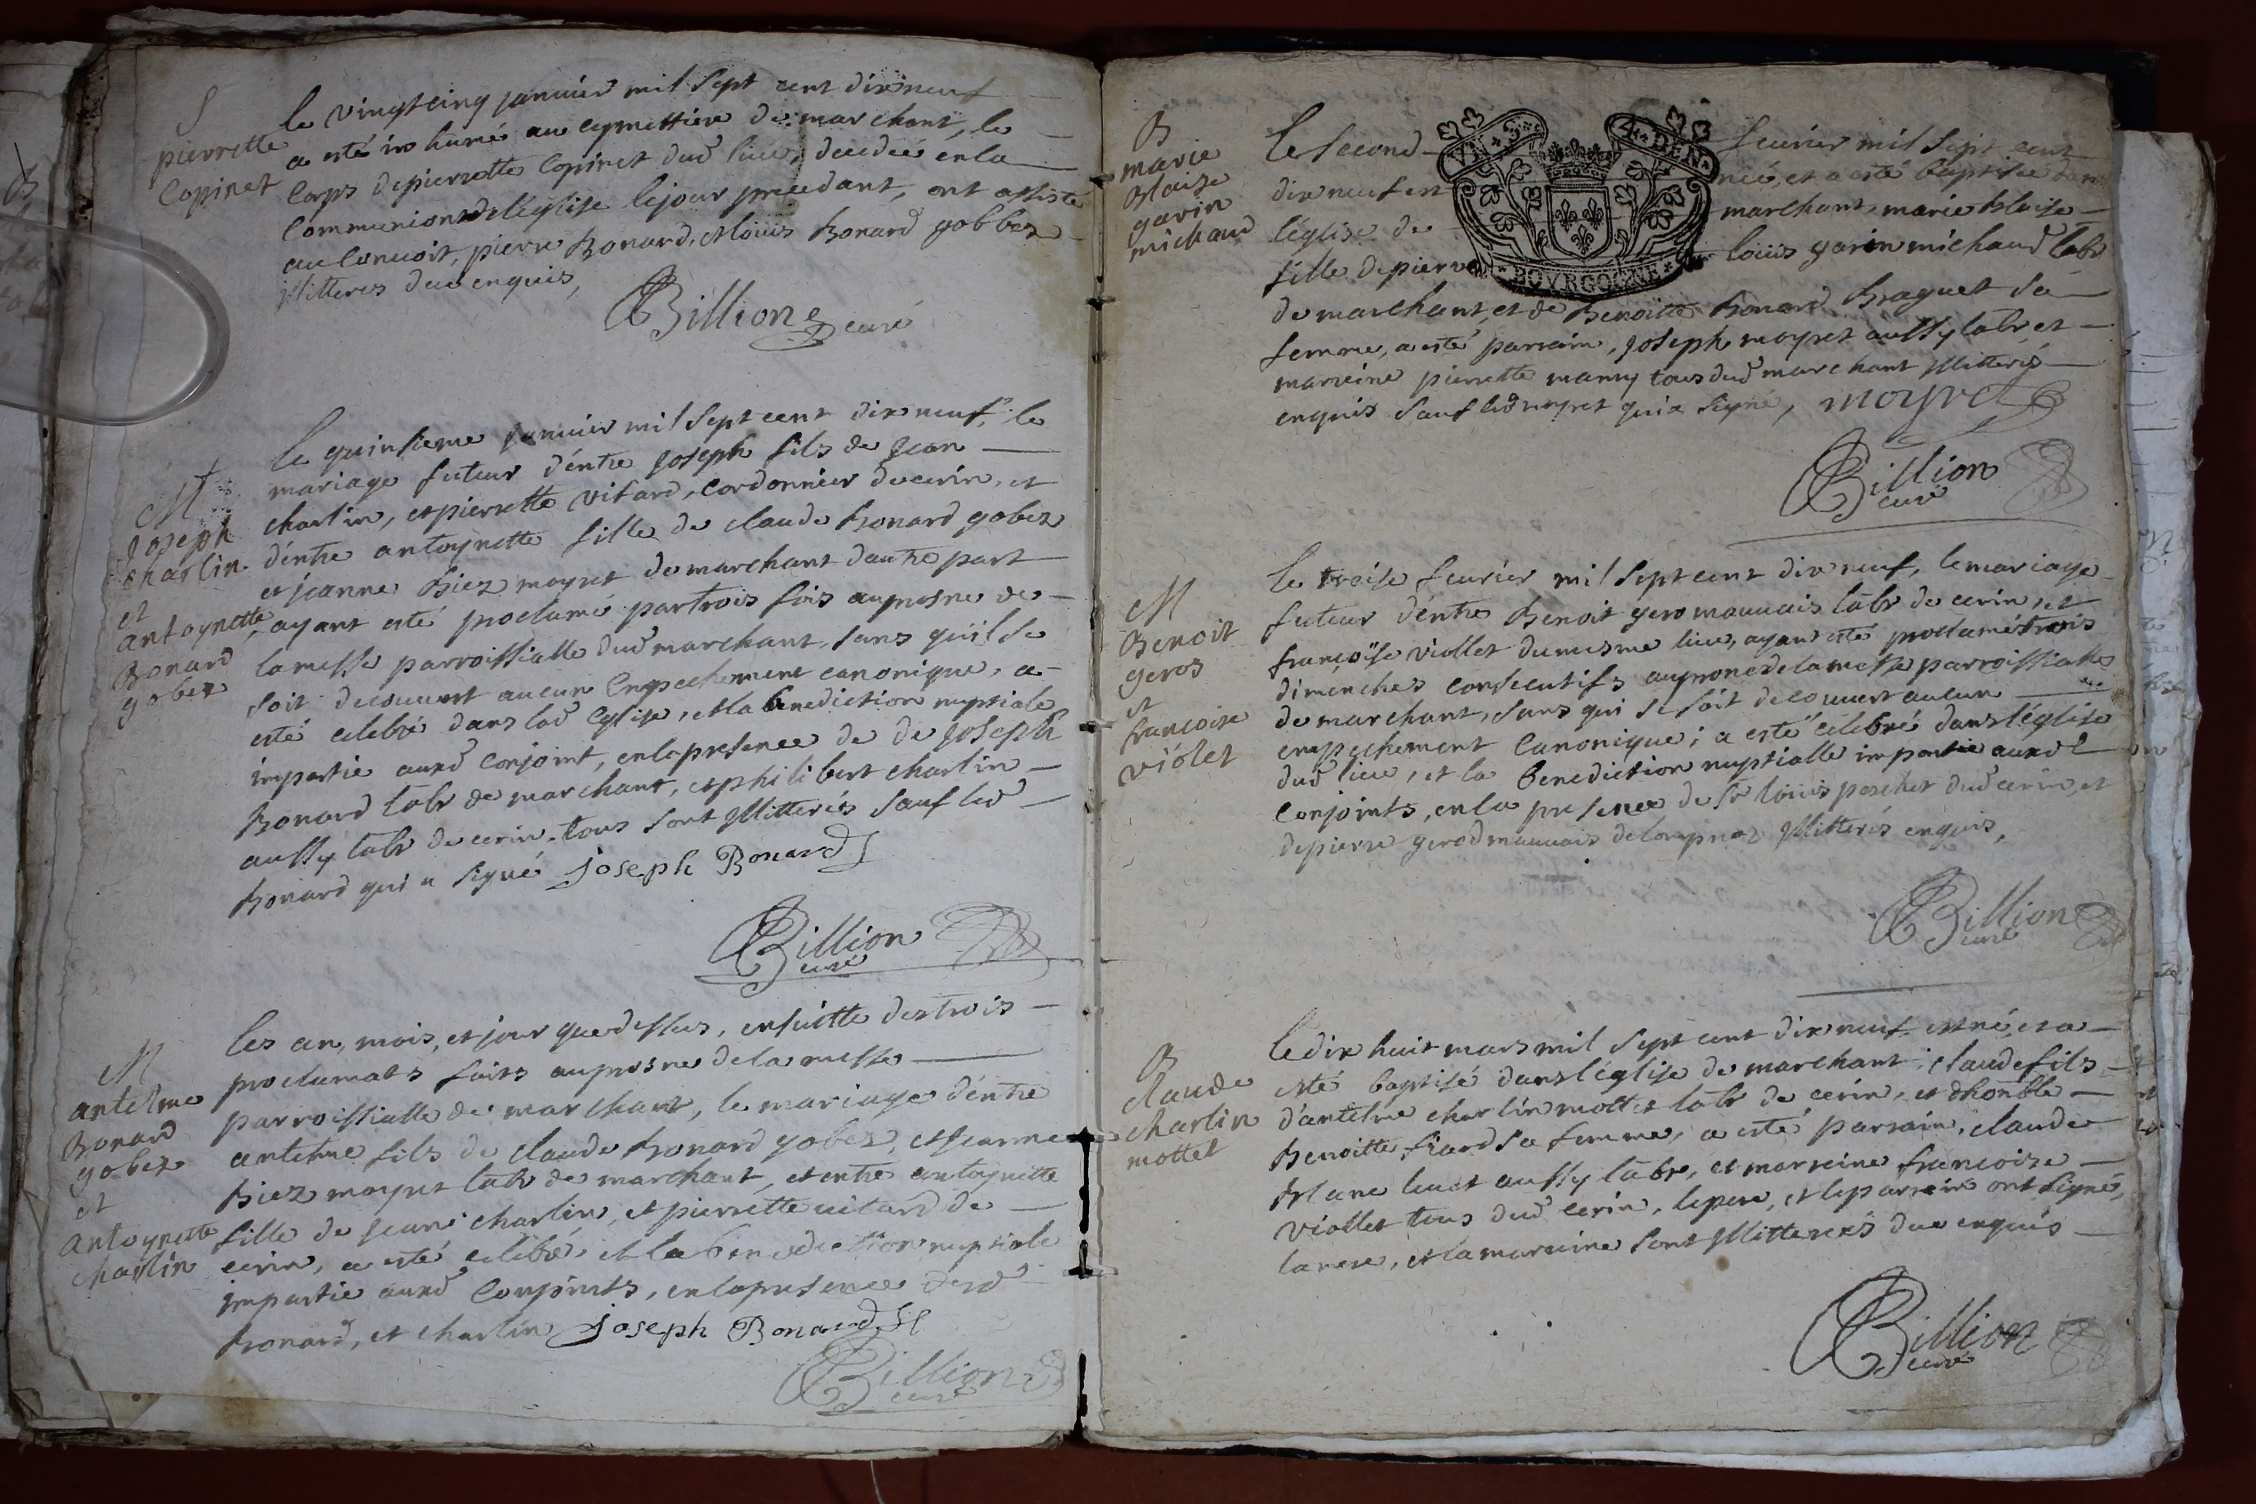 S
pierrette
Copinet
le vingt cinq januier mil sept cent dix neuf
a esté inhumé au cymettiere de marchant, le
corps de pierrette Copinet dud lieu, decedée en la
Communion de léglise le jour precedant, ont assisté
au Conuoit, pierre Bonard, et loüis Bonard gobbez
illitteres due enquis,
Billion curé
M
Joseph
charlin
et
antoynette
Bonard
gobez
le quinsieme januier mil sept cent dix neuf, le
mariage futeur d'éntre Joseph fils de Jean
charlin, et pierrette vitard, cordonnier de cerin, et
d'éntre antoynette fille de claude Bonard gobez
et jeanne Biez moyret de marchant dautre part
ayant esté proclamé par trois fois au prosne de
la messe parroissialle dud marchant, sans qu'il se
soit decouuert aucun Empechement canonique, a
esté celebré dans lad Eglise, et la benediction nuptiale
impartie auxd Conjoint, en la presence de de Joseph
Bonard labr de marchant, et philibert charlin
aussy labr de cerin. tous sont illitterés sauf led
Bonard qui a signé Joseph Bonard
Billion
curé
M
antelme
Bonard
gobez
et
antoynette
charlin
Les an, mois, et jour que dessus, ensuitte des trois
proclamats faits au prosne de la messe
parroissialle de marchant, le mariage d'éntre
antelme fils de claude Bonard gobez, et jeanne
Biez moyret labr de marchant, et entre antoynette
fille de jean charlin, et pierrette uitard de
cerin, a esté celebré, et la benediction nuptiale
impartie auxd Conjoints, en la presence desd
Bonard, et charlin Joseph Bonard
Billion
curé
B
marie
Blaize
garin
michaud
VN S
4 DEN
BOVRGOGNE
Le second feurier mil sept cent
dix neuf est née, et a esté baptisée dans
l'église de marchant, marie Blaize
fille de pierre loüis garin michaud labr
de marchant, et de Benoitte Bonard Braguet sa
femme, a esté parrain, Joseph moyret aussy labr, et
marreine pierrette mamy tous dud marchant illitterés
enquis sauf led moyret qui a signé, moyret
Billion
curé
M
Benoit
geros
et
francoise
violet
le troise feurier mil sept cent dix neuf, le mariage
futeur d'éntre Benoit gero mauuais labr de cerin, et
françoise viollet du mesme lieu, ayant esté proclamé trois
dimenches consecutifs au prone de la messe parroissialle
de marchant, sans qui se soit decouuert aucun
empechement Canonique; a esté celebré dans l'église
dud lieu, et la Benediction nuptialle impartie auxd
conjoints, en la presence de sr loüis perchet dud cerin, et
de pierre gerod mauuais de lompnaz illitterés enquis,
Billion
curé
B
claude
charlin
mottet
le dix huit mars mil sept cent dix neuf est né, et a
esté baptisé dans l'église de marchant, claude fils
d'antelme charlin mottet labr de cerin, et dhonble
Benoitte fiard sa femme, a esté parrain, claude
Blanc luet aussy labr, et marreine francoise
viollet tous dud cerin, le pere, et le parrein ont signé,
la mere, et la marreine sont illitterées due enquis
Billion
curé